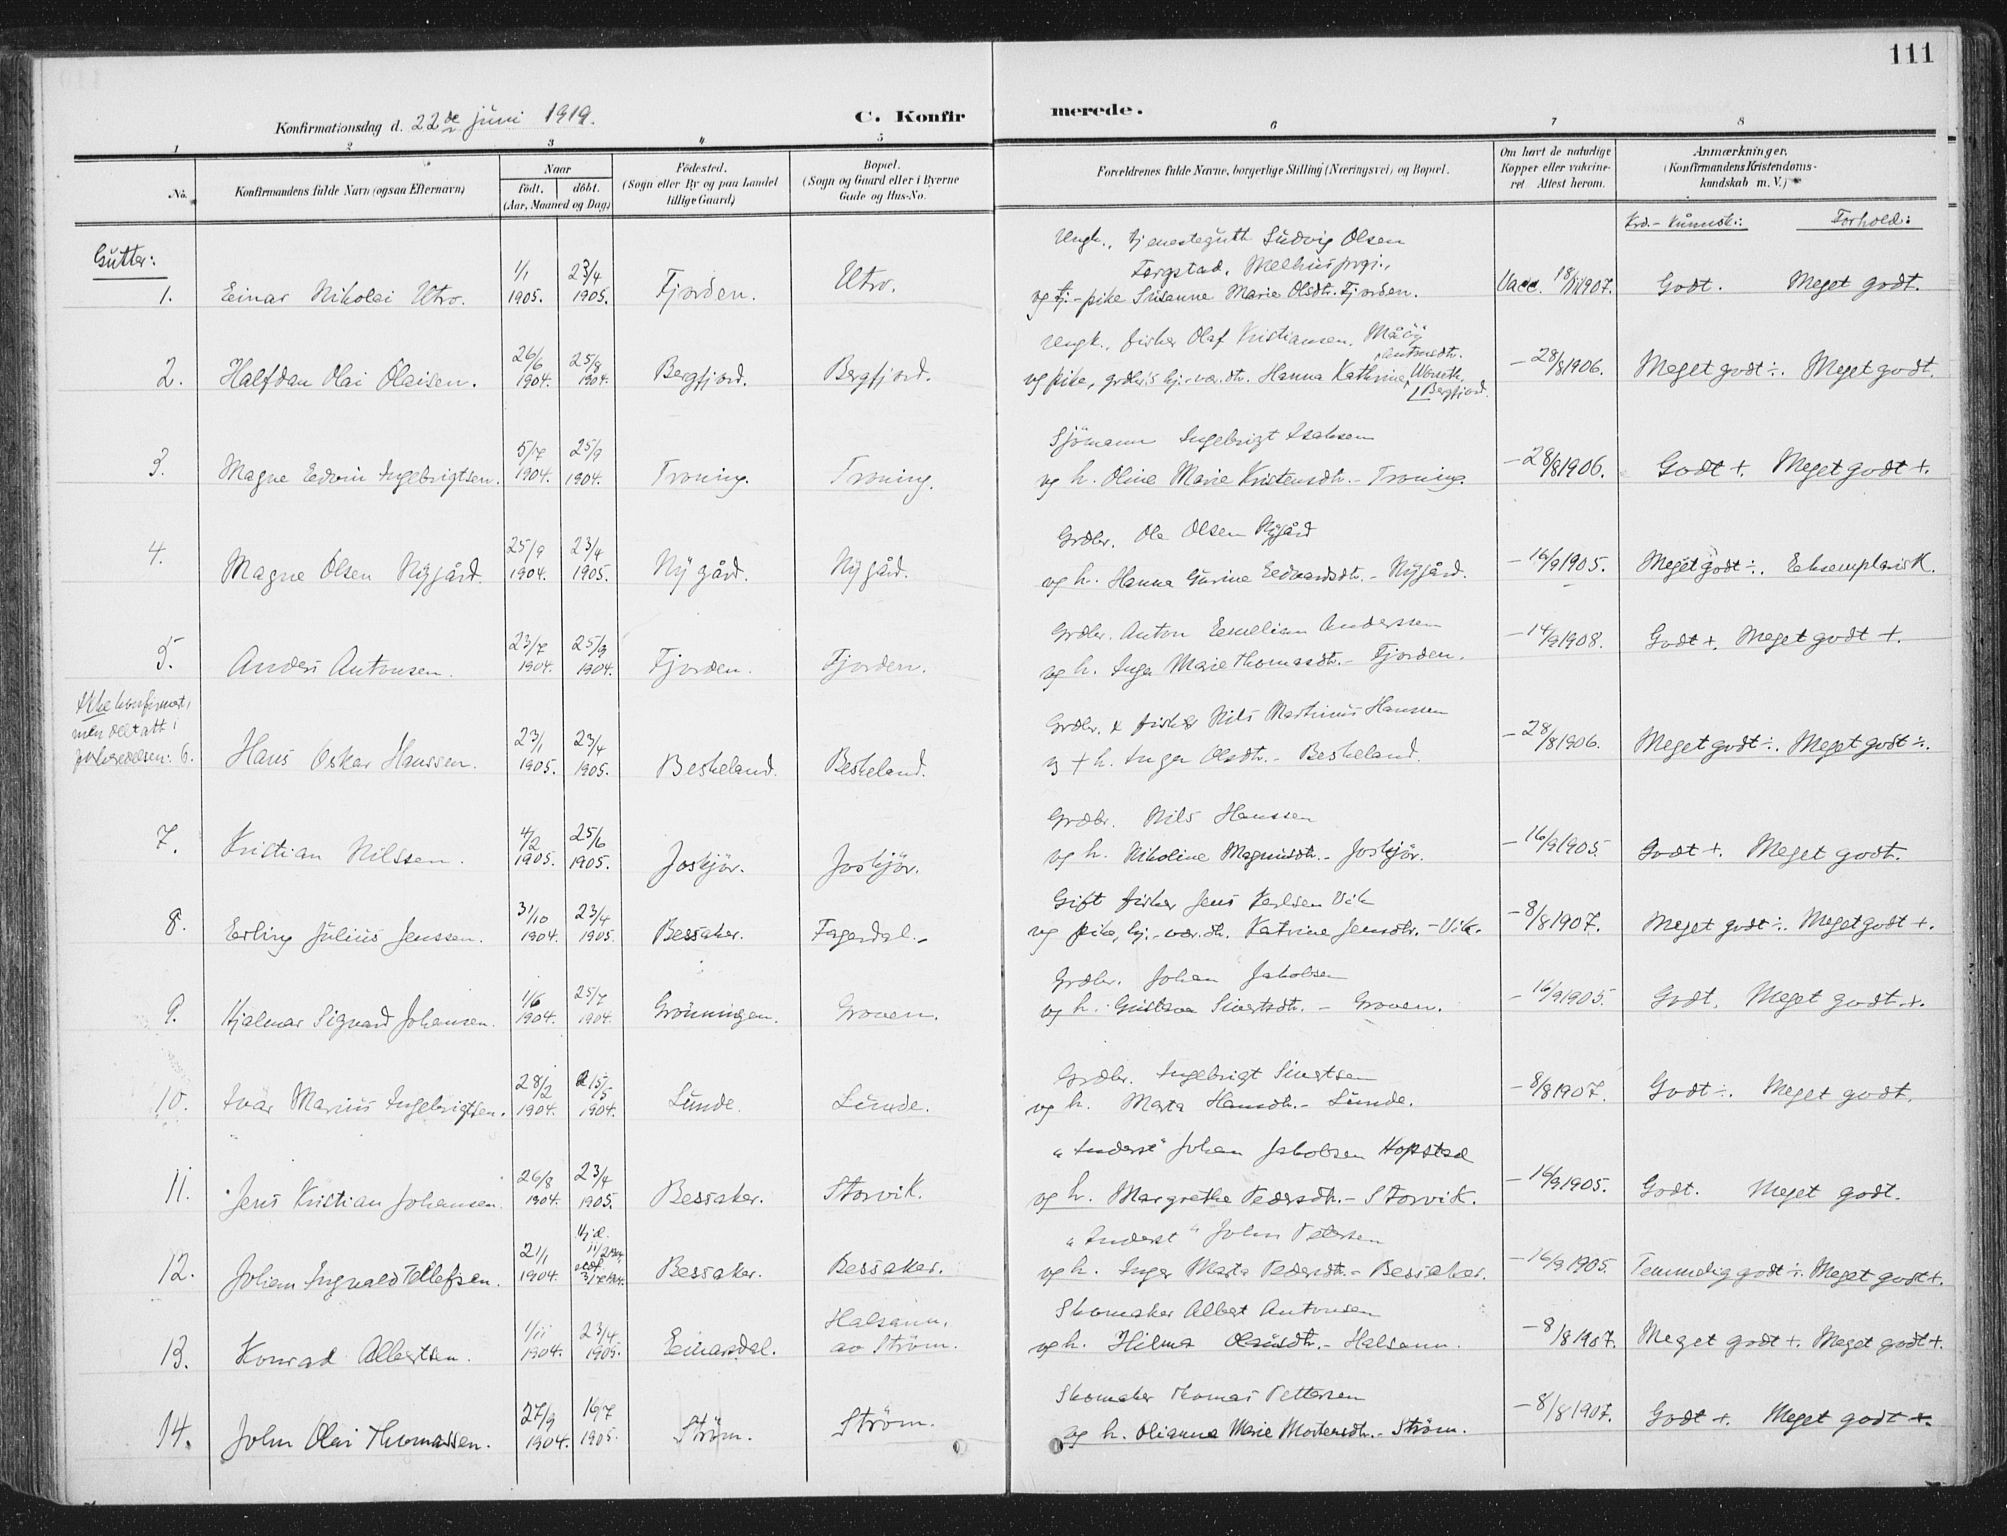 111
Konfirmationsdag d. 22de juni 1919.
C. Konfirmerede.
1 2 3 4 5 6 7 8
No.
Konfirmandens fulde Navn (ogsaa Efternavn)
Naar
født. døbt.
(Aar, Maaned og Dag)
Fødested.
(Sogn eller By og paa Landet
tillige Gaard)
Bopæl.
(Sogn og Gaard eller i Byerne
Gade og Hus-No.
Forældrenes fulde Navne, borgerlige Stilling (Næringsvei) og Bopæl.
Om havt de naturlige
Kopper eller vakcine-
ret Attest herom.
Anmærkninger.
(Konfirmandens Kristendoms-
kundskab m. V.)
Krd.-kunnsk.: Forhold:
Gutter:
Ungk., tjenestegutt Ludvig Olsen
Fergstad, Melhus
1. Einar Nikolai Utro. 1/1 1905. 23/4 1905. Fjorden. Utro. og tj.-pike Susanne Marie Olsdtr. Fjorden. Vacc. 1907. Godt. Meget godt.
Ungk., fisker Olaf Kristiansen, Måöy
2. Halfdan Olai Olaisen. 26/6 1904. 25/8 1904. Bergfjord. Bergfjord. og pike, Hanna Kathrine Antonsdtr. Bergfjord. – 28/8 1906. Meget godt ÷. Meget godt.
Sjömann Ingebrigt Isaksen
3. Magne Edvin Ingebrigtsen. 5/7 1904. 25/9 1904. Troning. Troning. og h. Oline Marie Kristensdtr. – Troning. – 28/8 1906. Godt +. Meget godt +.
Grdbr. Ole Olsen Nygård
4. Magne Olsen Nygård. 25/9 1904. 23/4 1905. Nygård. Nygård. og h. Hanna Gurine Edvardsdtr. – Nygård. – 16/9 1905. Meget godt ÷. Eksemplarisk.
Grdbr. Anton Emelian Anderssen
5. Anders Antonsen. 23/7 1904. 25/9 1904. Fjorden. Fjorden. og h. Inga Marie Thomasdtr. – Fjorden. – 14/9 1908. Godt +. Meget godt +.
Ikke konfirmert,
men deltatt i
forberedelsen:
Grdbr. & fisker Nils Martinus Hanssen
6. Hans Oskar Hanssen. 23/1 1905. 23/4 1905. Beskeland. Beskeland. og + h. Inga Olsdtr. – Beskeland. – 28/8 1906. Meget godt ÷. Meget godt ÷.
Grdbr. Nils Hanssen
7. Kristian Nilssen. 4/2 1905. 25/6 1905. Joskjör. Joskjör. og h. Nikoline Magnusdtr. – Joskjör. – 16/9 1905. Godt +. Meget godt.
Gift fisker Jens Karlsen Vik
8. Erling Julius Jenssen. 31/10 1904. 23/4 1905. Bessaker. Fagerdal. – og pike, hj.-vær.dtr. Katrine Jensdtr. – Vik. – 8/8 1907. Meget godt ÷. Meget godt +.
Grdbr. Johan Jakobsen
9. Hjalmar Sigvard Johansen. 1/6 1904. 25/7 1904. Grönningen. Groven. og h. Gustava Sivertsdtr. – Groven. – 16/9 1905. Godt. Meget godt +.
Grdbr. Ingebrigt Sivertsen
10. Ivar Marius Ingebrigtsen. 28/2 1904. 15/5 1904. Lunde. Lunde. og h. Marta Hansdtr. – Lunde. – 8/8 1907. Godt ÷. Meget godt.
"Inderst" Johan Jakobsen Hopstad
11. Jens Kristian Johansen. 26/8 1904. 23/4 1905. Bessaker. Storvik. og h. Margrethe Pedersdtr. – Storvik. – 16/9 1905. Godt. Meget godt.
"Inderst" John Petersen
12. Johan Ingvald Tellefsen. 21/1 1904. Hjd. 11/2 1904 Bessaker. Bessaker. og h. Inger Marta Pedersdtr. – Bessaker. – 16/9 1905. Temmelig godt ÷. Meget godt +.
Skomaker Albert Antonsen
13. Konrad Albertsen. 1/11 1904. 23/4 1905. Einarsdal. Halsann, av Ström. og h. Hilma Olausdtr. – Halsann. – 8/8 1907. Meget godt +. Meget godt +.
Skomaker Thomas Pettersen
14. John Olai Thomassen. 27/9 1904. 16/7 1905. Ström. Ström. og h. Olianna Marie Mortensdtr. – Ström. – 8/8 1907. Godt +. Meget godt +.